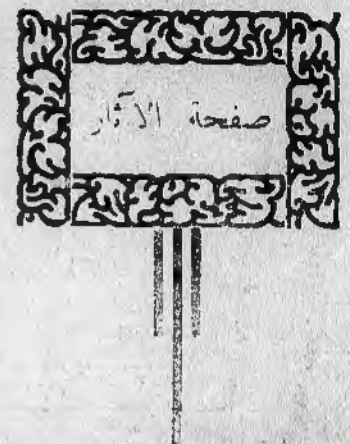 صفحة الآثار